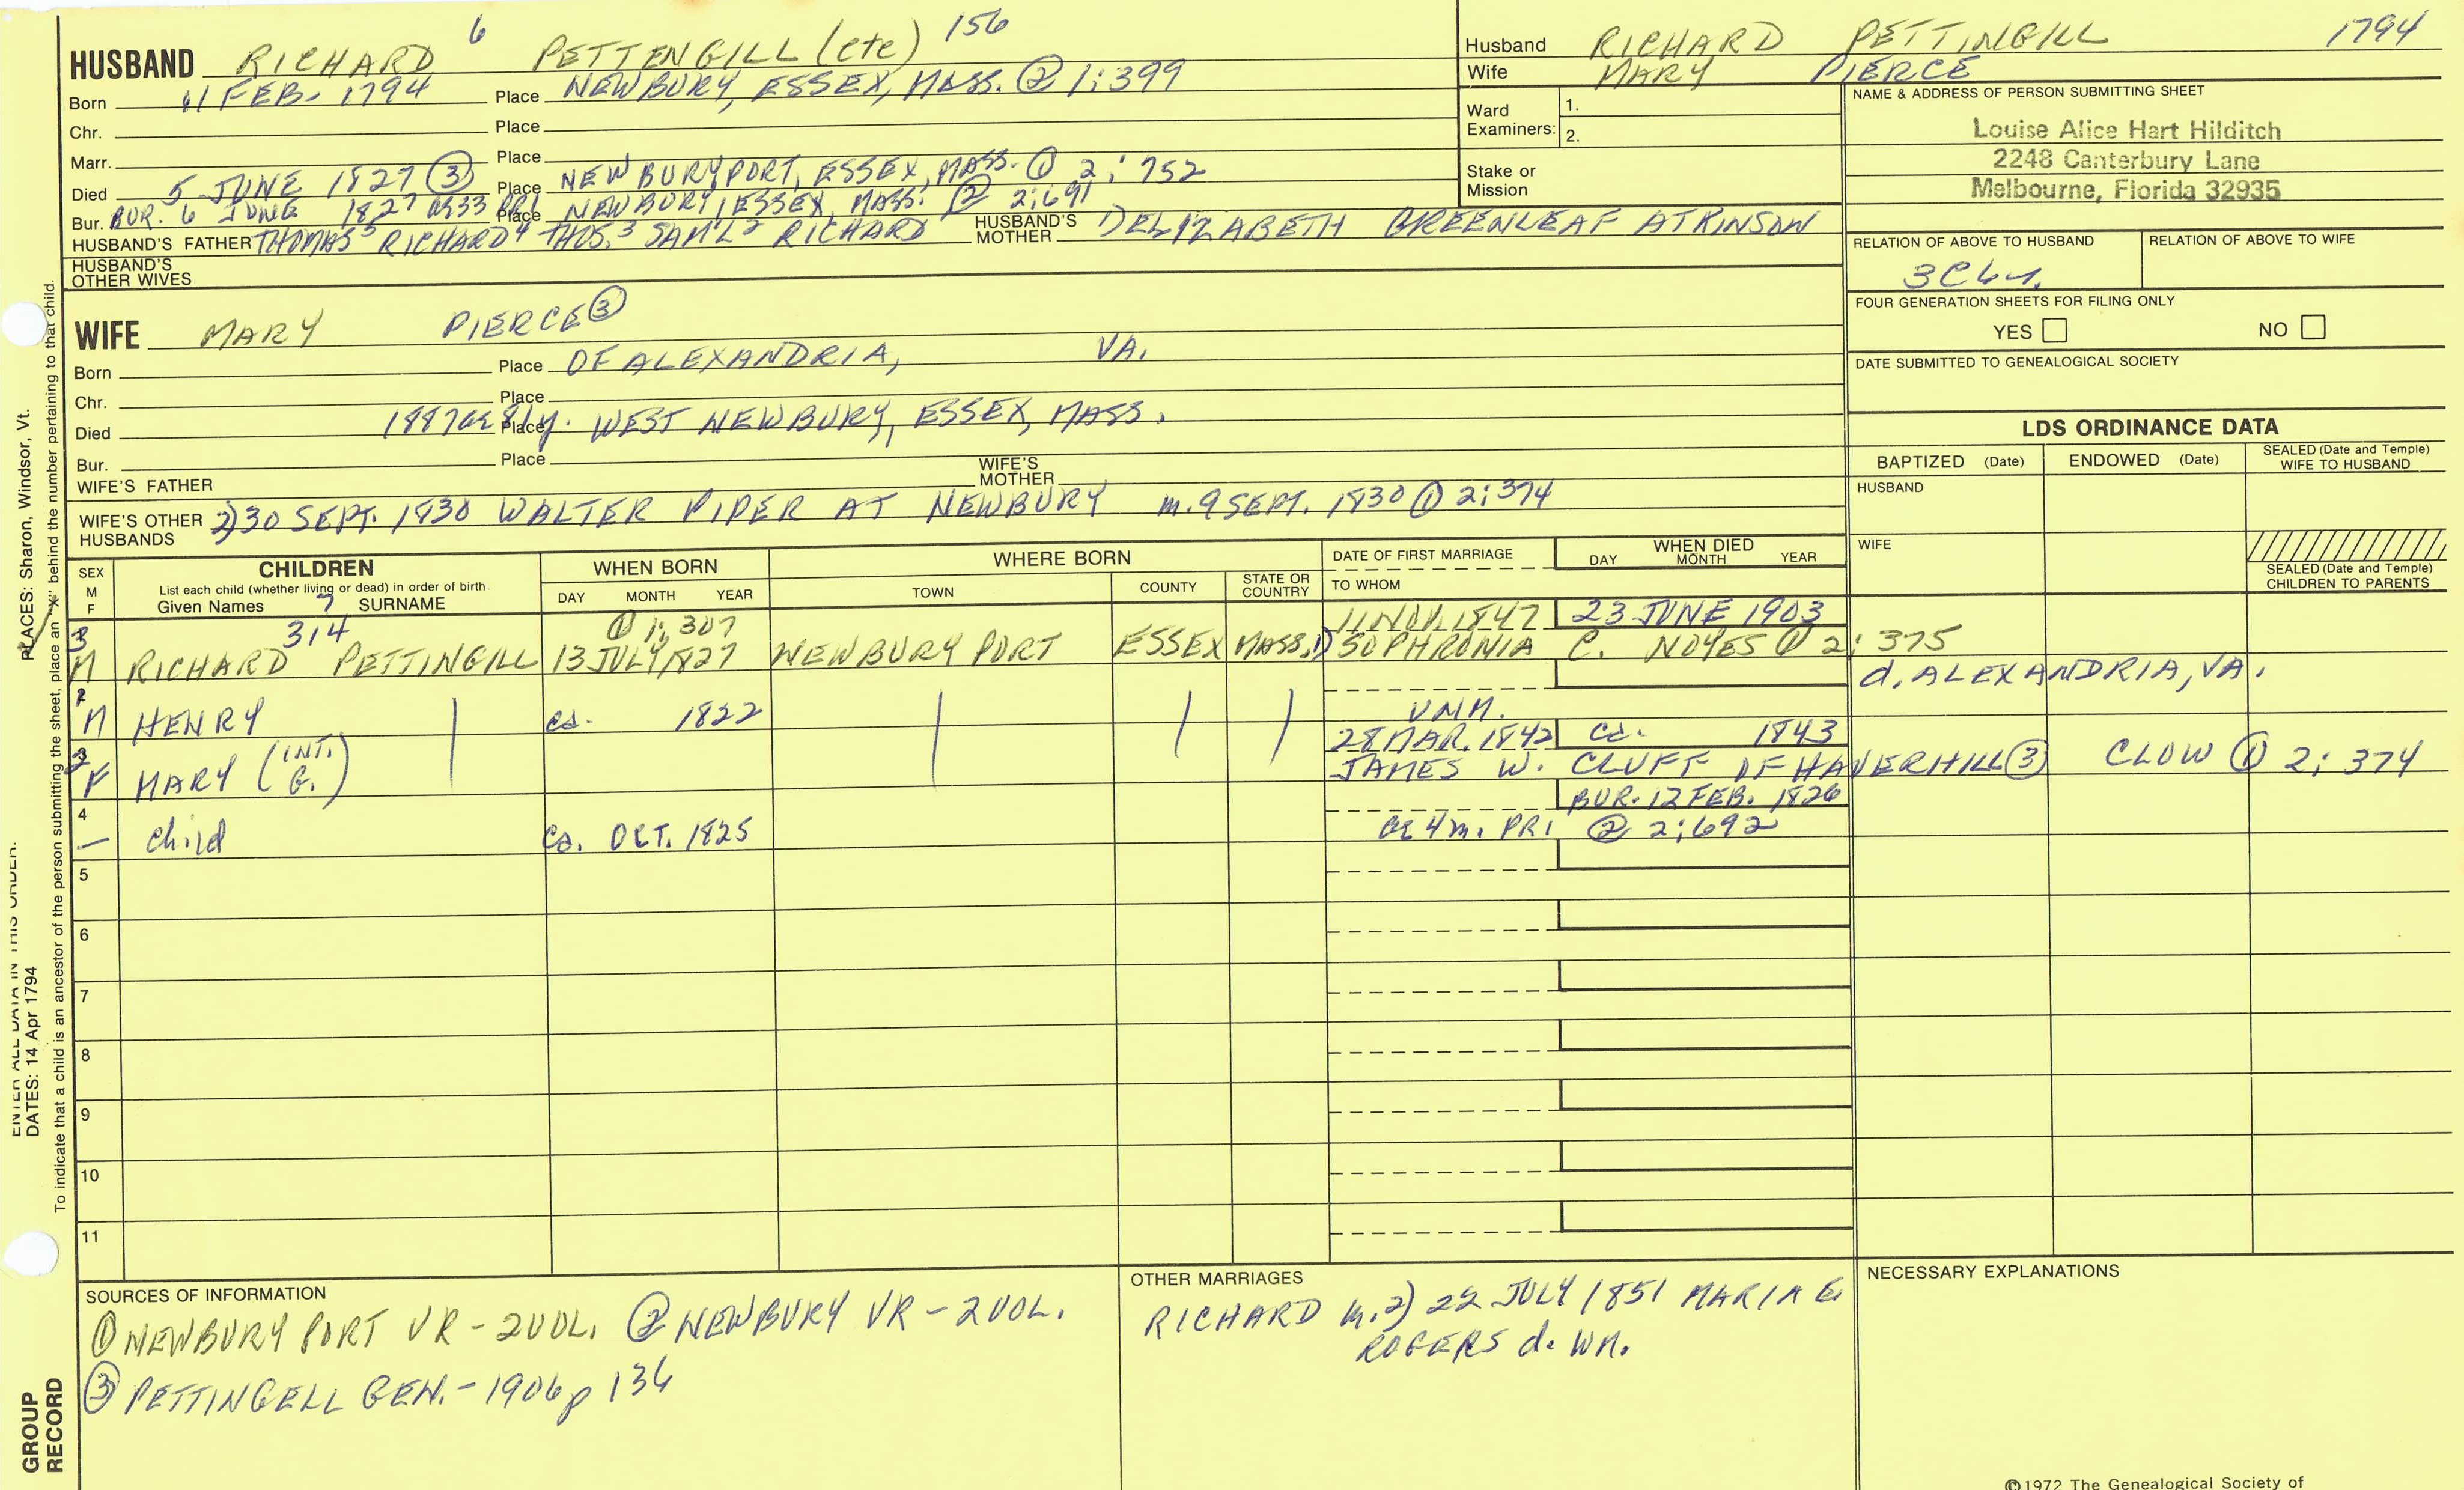 HUSBAND RICHARD 6 PETTENGILL (etc) 156
Born 11 FEB. 1794 Place NEWBURY, ESSEX, MASS. ② 1:399
Chr. Place
Marr. Place
Died 5 JUNE 1827 ③ Place NEWBURYPORT, ESSEX, MASS. ① 2:752
Bur. BUR. 6 JUNE 1827 ae33 PR1 Place NEWBURY, ESSEX, MASS. ② 2:691
HUSBAND'S FATHER THOMAS5 RICHARD4 THOS.3 SAM'L2 RICHARD HUSBAND'S MOTHER ELIZABETH GREENLEAF ATKINSON
HUSBAND'S OTHER WIVES
Husband RICHARD PETTINGILL 1794
Wife MARY PIERCE
Ward Examiners: 1.
2.
Stake or Mission
NAME & ADDRESS OF PERSON SUBMITTING SHEET
Louise Alice Hart Hilditch
2248 Canterbury Lane
Melbourne, Florida 32935
RELATION OF ABOVE TO HUSBAND RELATION OF ABOVE TO WIFE
FOUR GENERATION SHEETS FOR FILING ONLY
YES NO
DATE SUBMITTED TO GENEALOGICAL SOCIETY
WIFE MARY PIERCE ③
Born Place OF ALEXANDRIA, VA.
Chr. Place
Died 1887 ae 81y. Place WEST NEWBURY, ESSEX, MASS.
Bur. Place
WIFE'S FATHER WIFE'S MOTHER
WIFE'S OTHER HUSBANDS 2) 30 SEPT. 1830 WALTER PIPER AT NEWBURY m. 9 SEPT. 1830 ① 2:374
LDS ORDINANCE DATA
BAPTIZED (Date) ENDOWED (Date) SEALED (Date and Temple) WIFE TO HUSBAND
HUSBAND
WIFE
SEALED (Date and Temple) CHILDREN TO PARENTS
SEX M F
CHILDREN
List each child (whether living or dead) in order of birth
Given Names 7 SURNAME
WHEN BORN
DAY MONTH YEAR
WHERE BORN
TOWN COUNTY STATE OR COUNTRY
DATE OF FIRST MARRIAGE
TO WHOM
WHEN DIED
DAY MONTH YEAR
3 314 ① 1:307 11 NOV. 1847 23 JUNE 1903
M RICHARD PETTINGILL 13 JULY 1827 NEWBURYPORT ESSEX MASS. 1) SOPHRONIA C. NOYES ① 2:375
d. ALEXANDRIA, VA.
M HENRY ca. 1822 UNM.
28 MAR. 1842 ca. 1843
F MARY (INT. G.) JAMES W. CLUFF OF HAVERHILL ③ CLOW ① 2:374
4 BUR. 12 FEB. 1826
— child ca. OCT. 1825 ae 4m. PR1 ② 2:692
5
6
7
8
9
10
11
SOURCES OF INFORMATION
① NEWBURYPORT VR - 2 VOL. ② NEWBURY VR - 2 VOL.
③ PETTINGELL GEN. - 1906 p 134
OTHER MARRIAGES
RICHARD m. 2) 22 JULY 1851 MARIA E.
ROGERS d. WM.
NECESSARY EXPLANATIONS
©1972 The Genealogical Society of
PLACES: Sharon, Windsor, Vt.
ENTER ALL DATA IN THIS ORDER.
DATES: 14 Apr 1794
To indicate that a child is an ancestor of the person submitting the sheet, place an "X" behind the number pertaining to that child.
GROUP
RECORD